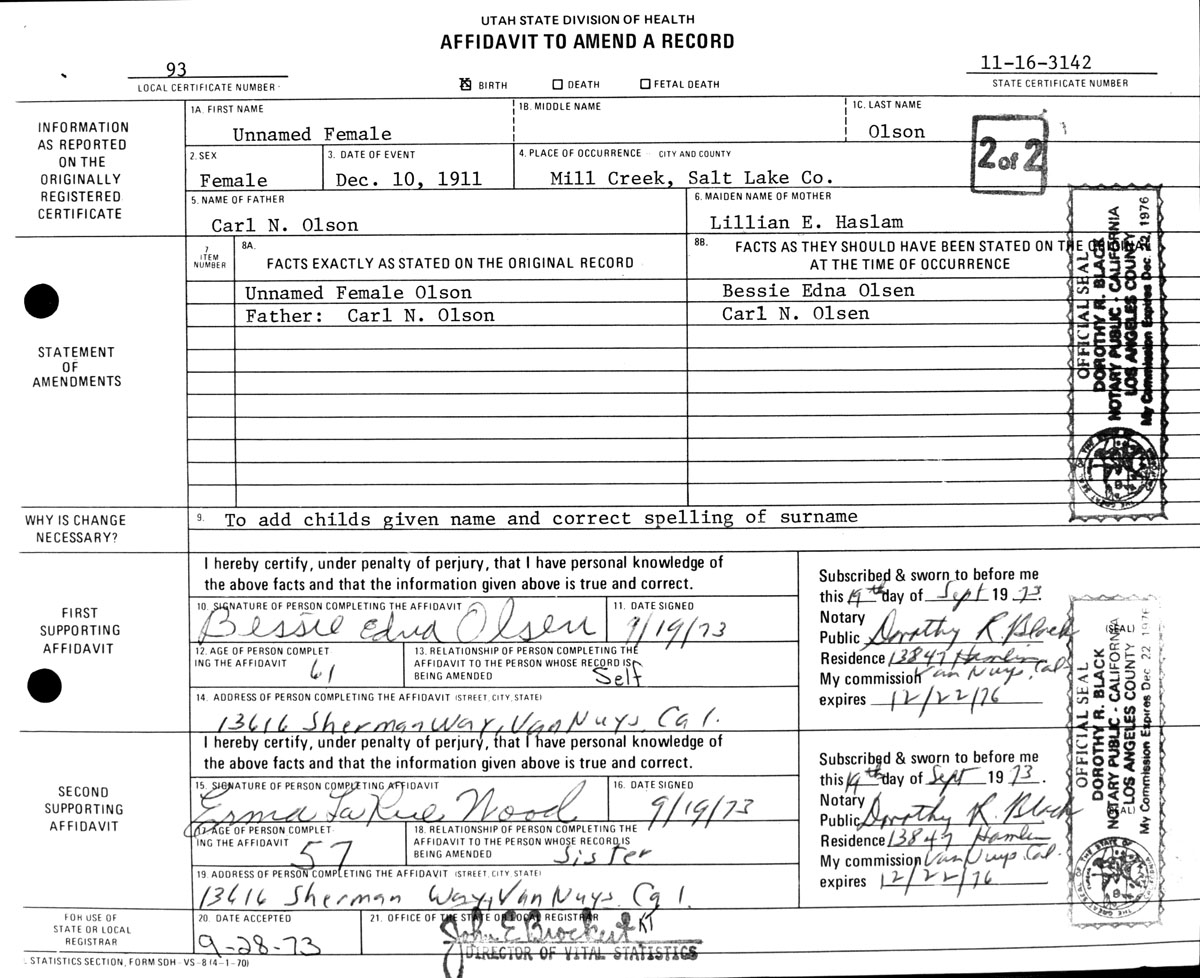 UTAH STATE DIVISION OF HEALTH
AFFIDAVIT TO AMEND A RECORD
93
LOCAL CERTIFICATE NUMBER
BIRTH DEATH FETAL DEATH
11-16-3142
STATE CERTIFICATE NUMBER
INFORMATION
AS REPORTED
ON THE
ORIGINALLY
REGISTERED
CERTIFICATE
1A. FIRST NAME 1B. MIDDLE NAME 1C. LAST NAME
Unnamed Female Olson
2 of 2
2. SEX 3. DATE OF EVENT 4. PLACE OF OCCURRENCE CITY AND COUNTY
Female Dec. 10, 1911 Mill Creek, Salt Lake Co.
5. NAME OF FATHER 6. MAIDEN NAME OF MOTHER
Carl N. Olson Lillian E. Haslam
STATEMENT
OF
AMENDMENTS
7.
ITEM
NUMBER
8A.
FACTS EXACTLY AS STATED ON THE ORIGINAL RECORD
8B. FACTS AS THEY SHOULD HAVE BEEN STATED ON THE
AT THE TIME OF OCCURRENCE
Unnamed Female Olson Bessie Edna Olsen
Father: Carl N. Olson Carl N. Olsen
OFFICIAL SEAL
DOROTHY R. BLACK
NOTARY PUBLIC - CALIFORNIA
LOS ANGELES COUNTY
My Commission Expires Dec. 22, 1976
WHY IS CHANGE
NECESSARY?
9. To add childs given name and correct spelling of surname
FIRST
SUPPORTING
AFFIDAVIT
I hereby certify, under penalty of perjury, that I have personal knowledge of
the above facts and that the information given above is true and correct.
10. SIGNATURE OF PERSON COMPLETING THE AFFIDAVIT 11. DATE SIGNED
Bessie Edna Olsen 9/19/73
12. AGE OF PERSON COMPLET
ING THE AFFIDAVIT 61
13. RELATIONSHIP OF PERSON COMPLETING THE
AFFIDAVIT TO THE PERSON WHOSE RECORD IS
BEING AMENDED Self
14. ADDRESS OF PERSON COMPLETING THE AFFIDAVIT (STREET, CITY, STATE)
13616 Sherman Way, Van Nuys. Cal.
Subscribed & sworn to before me
this 19th day of Sept 19 73.
Notary
Public Dorothy R. Black
(SEAL)
Residence 13847 Hamlin
My commission Van Nuys, Cal.
expires 12/22/76
OFFICIAL SEAL
DOROTHY R. BLACK
NOTARY PUBLIC - CALIFORNIA
LOS ANGELES COUNTY
My Commission Expires Dec. 22 1976
SECOND
SUPPORTING
AFFIDAVIT
I hereby certify, under penalty of perjury, that I have personal knowledge of
the above facts and that the information given above is true and correct.
15. SIGNATURE OF PERSON COMPLETING AFFIDAVIT 16. DATE SIGNED
Erma LaRue Wood 9/19/73
17. AGE OF PERSON COMPLET
ING THE AFFIDAVIT 57
18. RELATIONSHIP OF PERSON COMPLETING THE
AFFIDAVIT TO THE PERSON WHOSE RECORD IS
BEING AMENDED Sister
19. ADDRESS OF PERSON COMPLETING THE AFFIDAVIT (STREET, CITY, STATE)
13616 Sherman Way, Van Nuys. Cal.
Subscribed & sworn to before me
this 19th day of Sept 19 73.
Notary
Public Dorothy R. Black
Residence 13847 Hamlin
My commission Van Nuys. Cal.
expires 12/22/76
FOR USE OF
STATE OR LOCAL
REGISTRAR
20. DATE ACCEPTED 21. OFFICE OF THE STATE OR LOCAL REGISTRAR
9-28-73 John E Brockert
DIRECTOR OF VITAL STATISTICS
STATISTICS SECTION, FORM SDH-VS-8 (4-1-70)